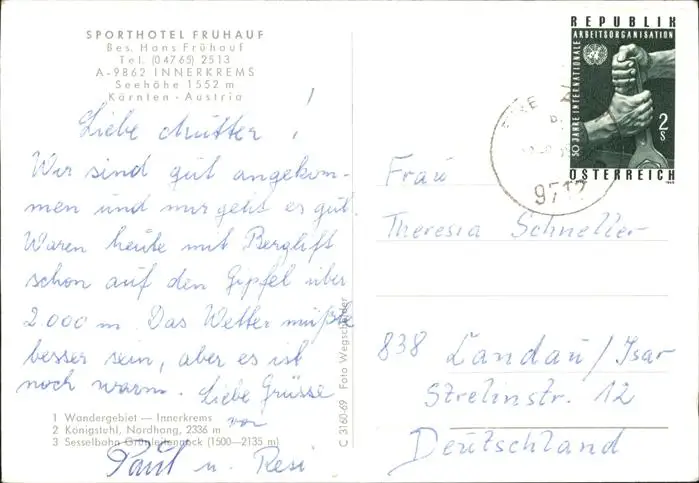 SPORTHOTEL FRÜHAUF
Bes. Hans Frühauf
Tel. (04765) 2513
A-9862 INNERKREMS
Seehöhe 1552 m
Kärnten - Austria
Liebe Mutter!
Wir sind gut angekom-
men und mir geht es gut.
Waren heute mit Berglift
schon auf den Gipfel über
2.000 m. Das Wetter müßte
besser sein, aber es ist
noch warm. Liebe Grüsse
von
Paul u. Resi
1 Wandergebiet — Innerkrems
2 Königstuhl, Nordhang, 2336 m
3 Sesselbahn Grünleitennock (1500—2135 m)
C 3160-69 Foto Wegscheider
REPUBLIK
50 JAHRE INTERNATIONALE
ARBEITSORGANISATION
2 S
ÖSTERREICH
9717
Frau
Theresia Schneller
838 Landau/Isar
12
Deutschland